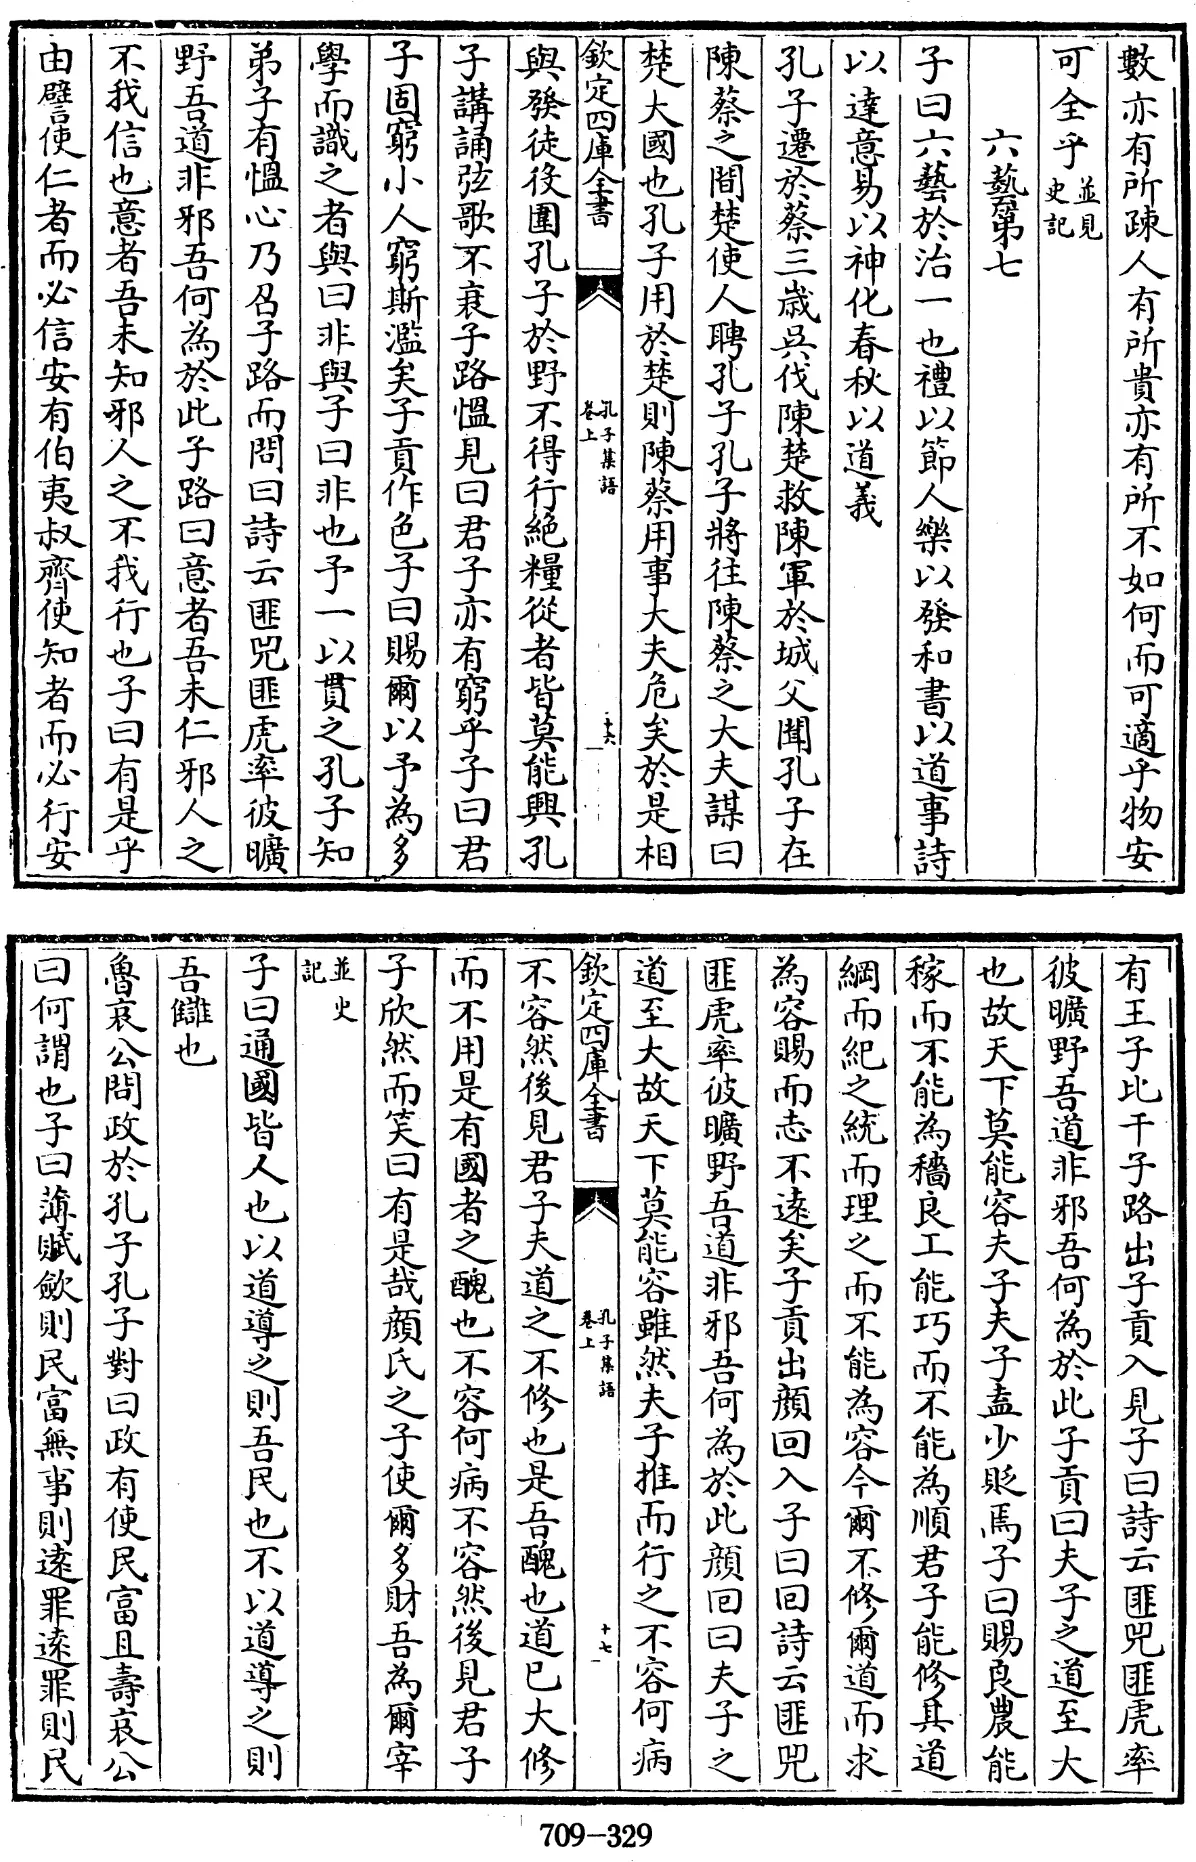 數亦有所疎人有所貴亦有所不如何而可適乎物安
可全乎並見史記
六藝第七
子曰六藝於治一也禮以節人樂以發和書以道事詩
以達意易以神化春秋以道義
孔子遷於蔡三歲吳伐陳楚救陳軍於城父聞孔子在
陳蔡之間楚使人聘孔子孔子將往陳蔡之大夫謀曰
楚大國也孔子用於楚則陳蔡用事大夫危矣於是相
欽定四庫全書 孔子集語卷上 十六
與發徒役圍孔子於野不得行絶糧從者皆莫能興孔
子講誦弦歌不衰子路慍見曰君子亦有窮乎子曰君
子固窮小人窮斯濫矣子貢作色子曰賜爾以予為多
學而識之者與曰非與子曰非也予一以貫之孔子知
弟子有慍心乃召子路而問曰詩云匪兕匪虎率彼曠
野吾道非邪吾何為於此子路曰意者吾未仁邪人之
不我信也意者吾未知邪人之不我行也子曰有是乎
由譬使仁者而必信安有伯夷叔齊使知者而必行安
有王子比干子路出子貢入見子曰詩云匪兕匪虎率
彼曠野吾道非邪吾何為於此子貢曰夫子之道至大
也故天下莫能容夫子夫子盍少貶焉子曰賜良農能
稼而不能為穡良工能巧而不能為順君子能修其道
綱而紀之統而理之而不能為容今爾不修爾道而求
為容賜而志不遠矣子貢出顔回入子曰回詩云匪兕
匪虎率彼曠野吾道非邪吾何為於此顔回曰夫子之
道至大故天下莫能容雖然夫子推而行之不容何病
欽定四庫全書 孔子集語卷上 十七
不容然後見君子夫道之不修也是吾醜也道已大修
而不用是有國者之醜也不容何病不容然後見君子
子欣然而笑曰有是哉顔氏之子使爾多財吾為爾宰
並史記
子曰通國皆人也以道導之則吾民也不以道導之則
吾讎也
魯哀公問政於孔子孔子對曰政有使民富且壽哀公
曰何謂也子曰薄賦歛則民富無事則逺罪逺罪則民
709-329